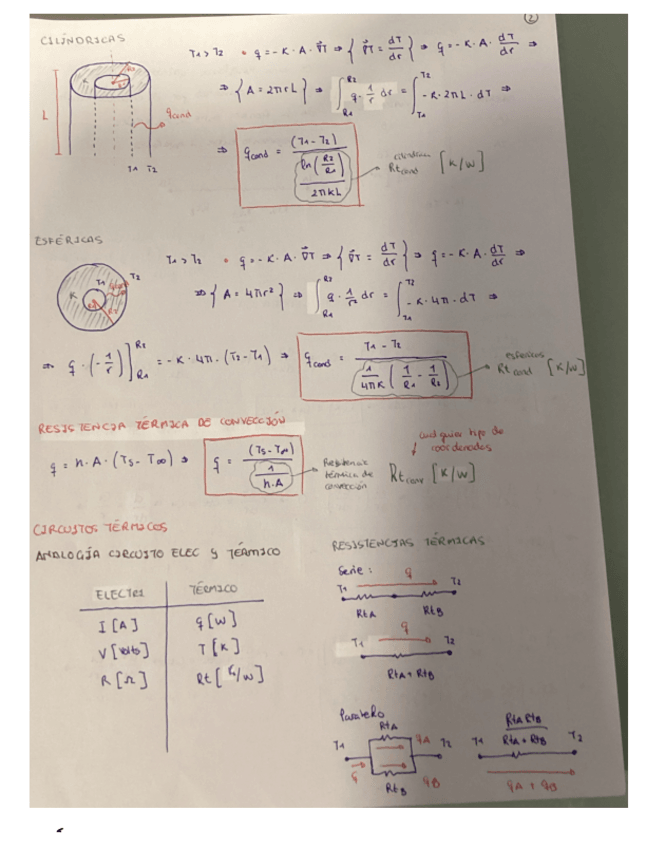 2
CILÍNDRICAS
T1 > T2 • q = -K·A·∇T ⇒ { ∇T = dT/dr } ⇒ q = -K·A·dT/dr ⇒
K
L
qcond
T1 T2
⇒ { A = 2πrL } ⇒ ∫_{R1}^{R2} q·1/r dr = ∫_{T1}^{T2} -K·2πL·dT ⇒
⇒ qcond = (T1 - T2) / (ln(R2/R1) / 2πKL)
cilíndricas
Rtcond [K/W]
ESFÉRICAS
T1 > T2 • q = -K·A·∇T ⇒ { ∇T = dT/dr } ⇒ q = -K·A·dT/dr ⇒
T1 T2
K
⇒ { A = 4πr² } ⇒ ∫_{R1}^{R2} q·1/r² dr = ∫_{T1}^{T2} -K·4π·dT ⇒
⇒ q·(-1/r)]_{R1}^{R2} = -K·4π·(T2 - T1) ⇒ qcond = T1 - T2 / (1/4πK (1/R1 - 1/R2))
esféricas
Rtcond [K/W]
RESISTENCIA TÉRMICA DE CONVECCIÓN
q = h·A·(Ts - T∞) ⇒ q = (Ts - T∞) / (1/h·A)
Resistencia
térmica de
convección
cualquier tipo de
coordenadas
Rtconv [K/W]
CIRCUITOS TÉRMICOS
ANALOGÍA CIRCUITO ELEC Y TÉRMICO
ELECTRI TÉRMICO
I [A] q [W]
V [volts] T [K]
R [Ω] Rt [K/W]
RESISTENCIAS TÉRMICAS
Serie:
q
T1 T2
RtA RtB
q
T1 T2
RtA + RtB
Paralelo
RtA
T1 qA T2
q qB
RtB
RtA RtB / RtA + RtB
T1 T2
qA + qB